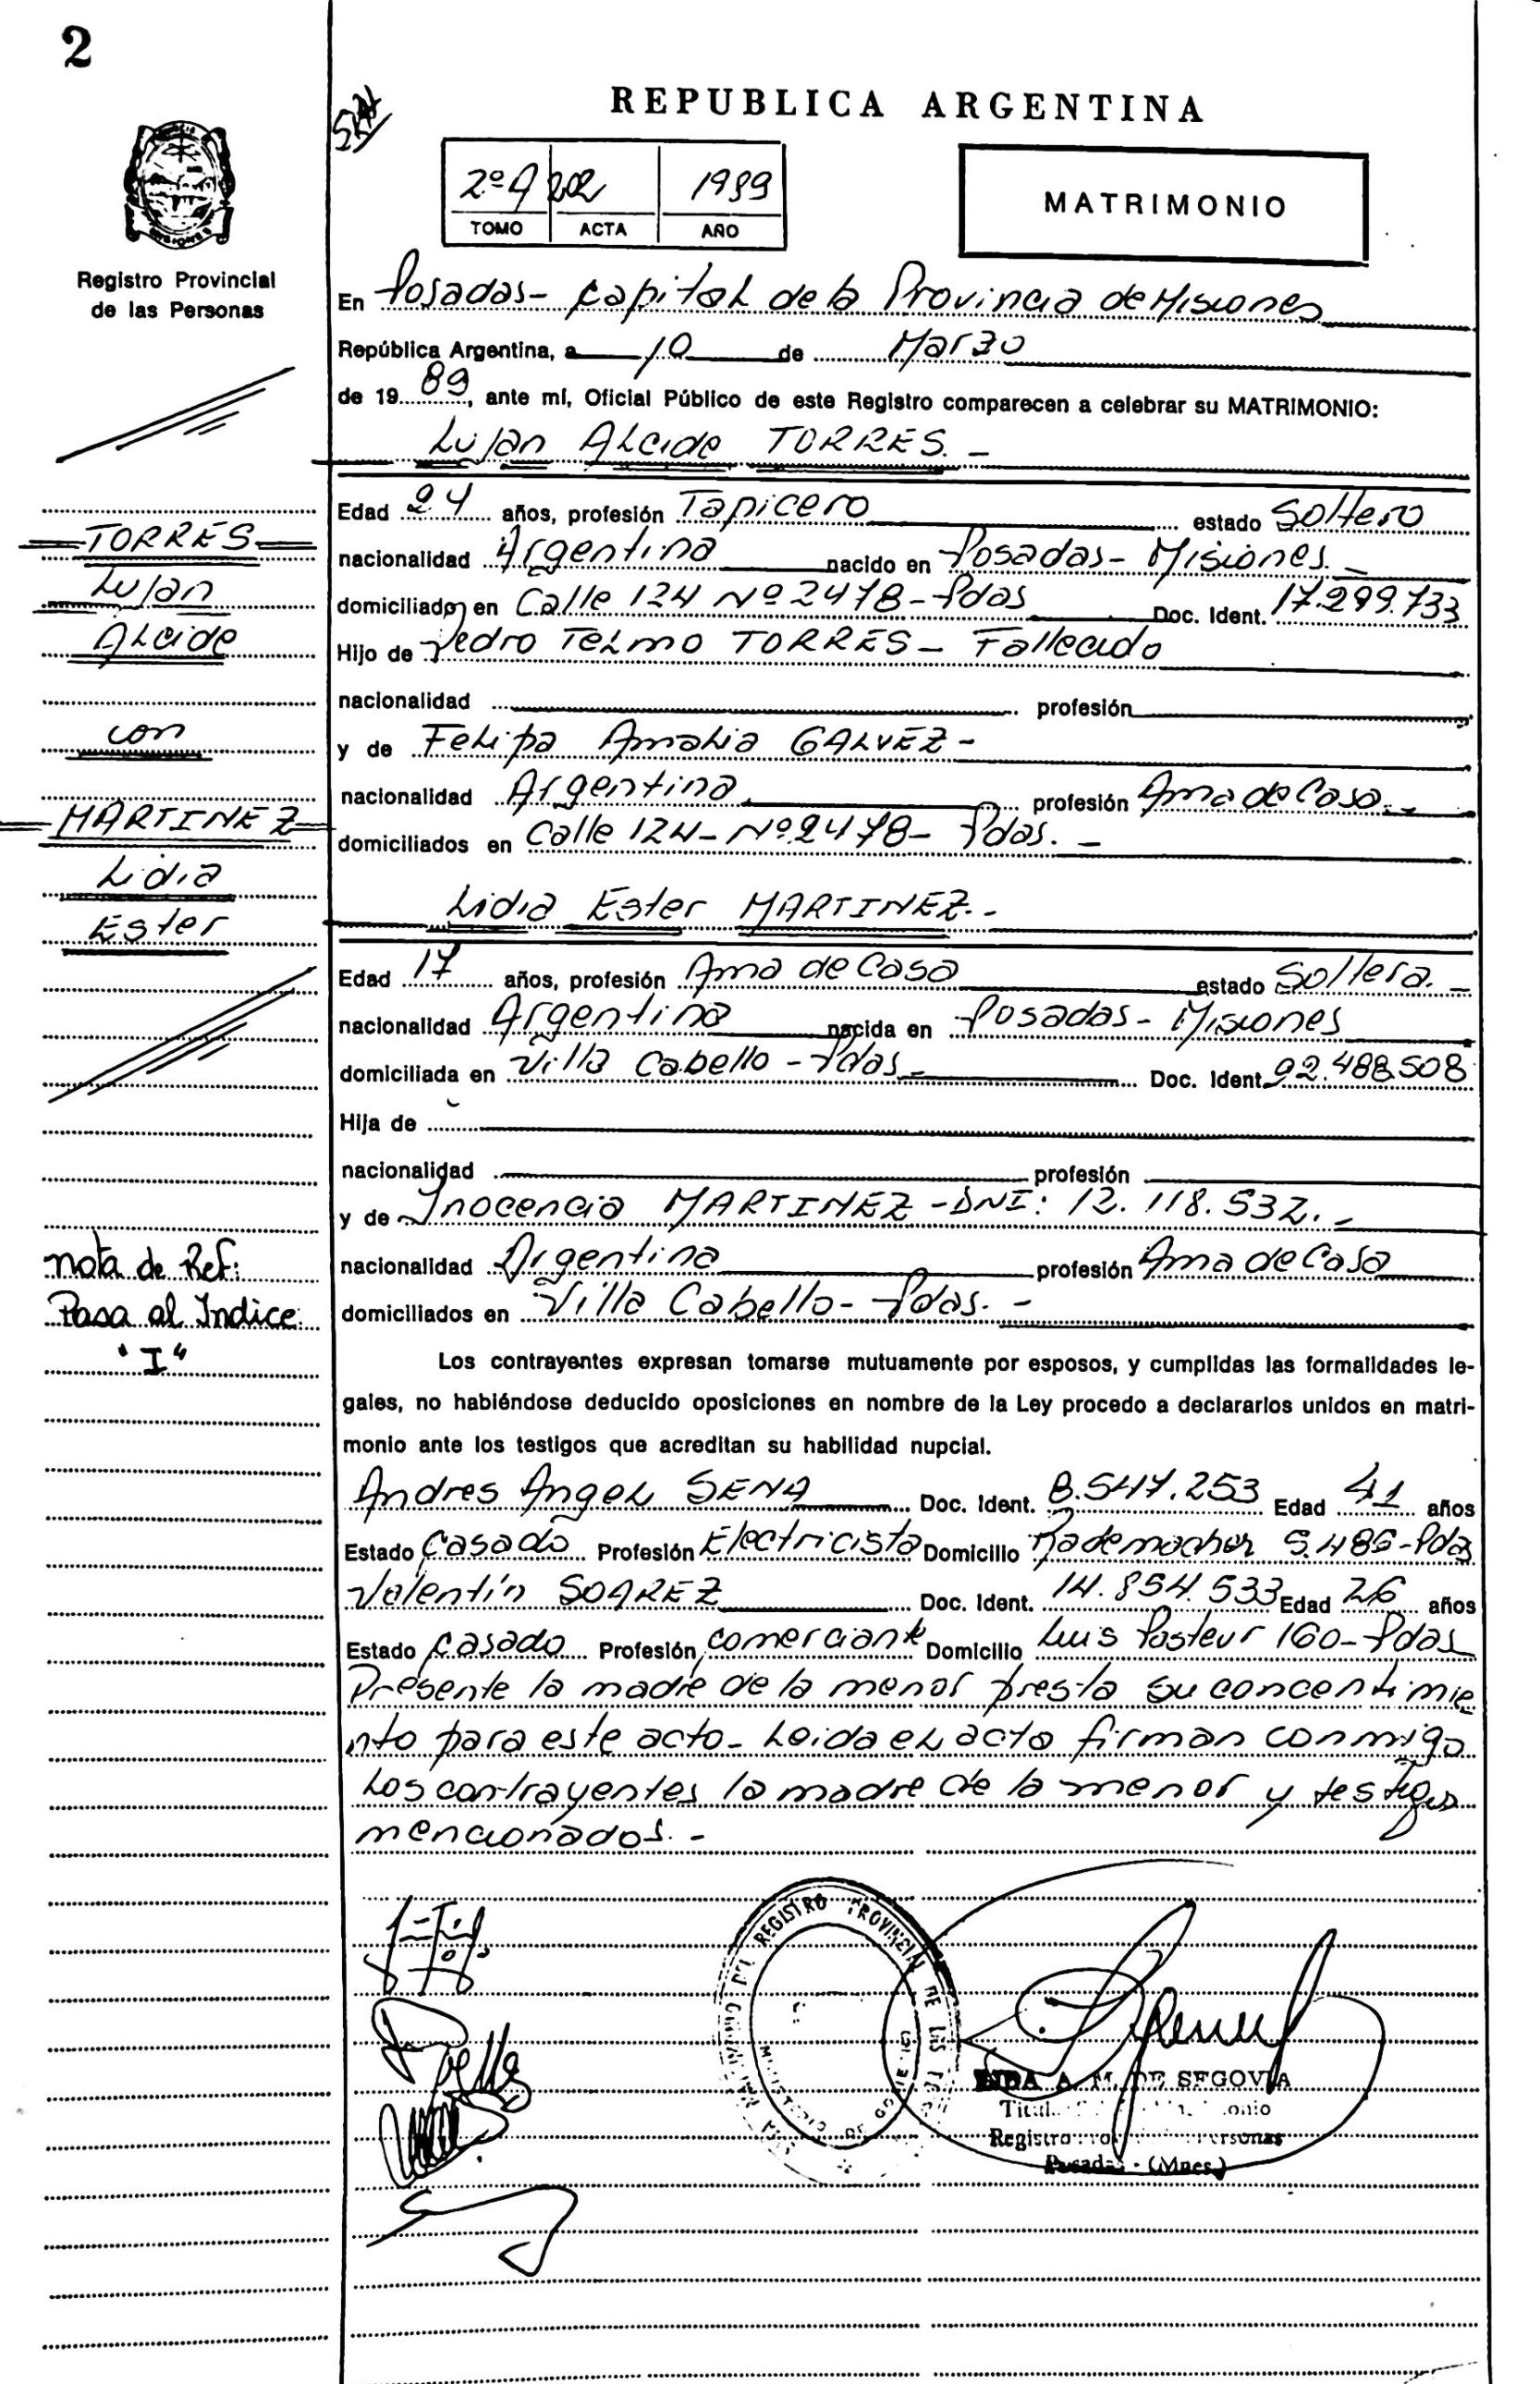 2
REPUBLICA ARGENTINA
2º A 202 1989
TOMO ACTA AÑO
MATRIMONIO
Registro Provincial
de las Personas
En Posadas- Capital de la Provincia de Misiones
República Argentina, a 10 de Marzo
de 19 89, ante mí, Oficial Público de este Registro comparecen a celebrar su MATRIMONIO:
Lujan Alcide TORRES. -
Edad 24 años, profesión Tapicero estado Soltero
TORRES
nacionalidad Argentina nacido en Posadas- Misiones. -
Lujan
domiciliado en Calle 124 Nº 2478-Pdas Doc. Ident. 17.299.733
Alcide
Hijo de Pedro Telmo TORRES- Fallecido
nacionalidad profesión
con
y de Felipa Amalia GALVEZ-
nacionalidad Argentina profesión Ama de Casa. -
MARTINEZ
domiciliados en Calle 124- Nº 2478- Pdas. -
Lidia
Lidia Ester MARTINEZ. -
Ester
Edad 17 años, profesión Ama de Casa estado Soltera. -
nacionalidad Argentina nacida en Posadas- Misiones
domiciliada en Villa Cabello - Pdas - Doc. Ident. 92.488.508
Hija de
nacionalidad profesión
y de Inocencia MARTINEZ -DNI: 12.118.532. -
nota de Ref:
nacionalidad Argentina profesión Ama de Casa
Pasa al Indice
domiciliados en Villa Cabello- Pdas. -
"I"
Los contrayentes expresan tomarse mutuamente por esposos, y cumplidas las formalidades le-
gales, no habiéndose deducido oposiciones en nombre de la Ley procedo a declararlos unidos en matri-
monio ante los testigos que acreditan su habilidad nupcial.
Andres Angel SENA Doc. Ident. 8.547.253 Edad 41 años
Estado Casado Profesión Electricista Domicilio Rademacher S.486-Pdas
Valentín SOAREZ Doc. Ident. 14.854.533 Edad 26 años
Estado Casado Profesión comerciante Domicilio Luis Pasteur 160-Pdas
Presente la madre de la menor presta su concentimie
nto para este acto- Leida el acto firman conmigo
Los contrayentes la madre de la menor y testigos
mencionados. -
REGISTRO PROVINCIAL DE LAS
MINISTERIO DE GO
A. M. DE SEGOVIA
Registro
Posadas - (Mnes.)